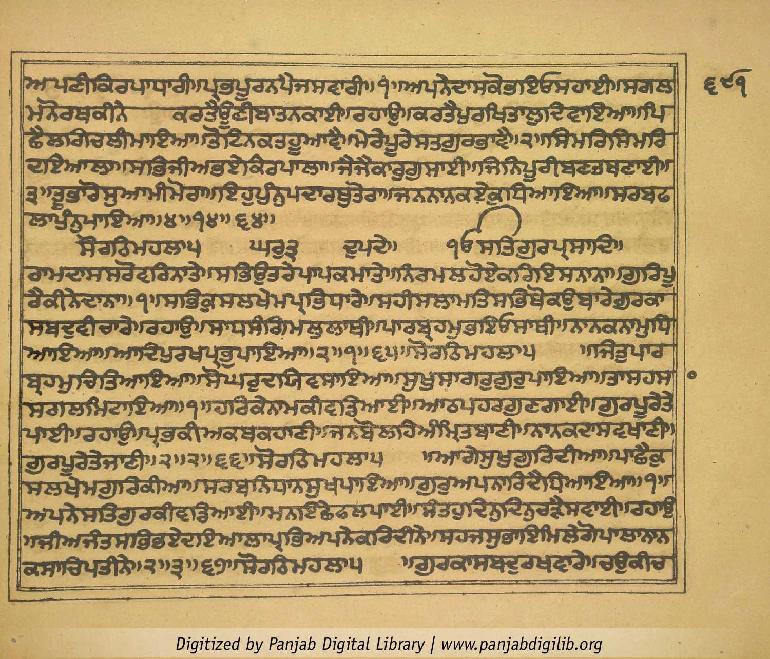 ੬੯੧
ਅਪਣੀਕਿਰਪਾਧਾਰੀ॥ਪ੍ਰਭਪੂਰਨਪੈਜਸਵਾਰੀ॥੧॥ਅਪਨੇਦਾਸਕੋਭਇਓਸਹਾਈ॥ਸਗਲ
ਮਨੋਰਥਕੀਨੇ ਕਰਤੈਊਣੀਬਾਤਨਕਾਈ॥ਰਹਾਉ॥ਕਰਤੈਪੁਰਖਿਤਾਲੁਦਿਵਾਇਆ॥ਪਿ
ਛੈਲਗਿਚਲੀਮਾਇਆ॥ਤੋਟਿਨਕਤਹੂਆਵੈ॥ਮੇਰੇਪੂਰੇਸਤਗੁਰਭਾਵੈ॥੨॥ਸਿਮਰਿਸਿਮਰਿ
ਦਇਆਲਾ॥ਸਭਿਜੀਅਭਏਕਿਰਪਾਲਾ॥ਜੈਜੈਕਾਰੁਗੁਸਾਈ॥ਜਿਨਿਪੂਰੀਬਣਤਬਣਾਈ॥
੩॥ਤੂਭਾਰੋਸੁਆਮੀਮੋਰਾ॥ਇਹੁਪੁੰਨੁਪਦਾਰਥੁਤੇਰਾ॥ਜਨਨਾਨਕਏਕੁਧਿਆਇਆ॥ਸਰਬਫ
ਲਾਪੁੰਨੁਪਾਇਆ॥੪॥੧੪॥੬੪॥
ਸੋਰਠਿਮਹਲਾ੫ ਘਰੁ੩ ਦੁਪਦੇ॥ ੴਸਤਿਗੁਰਪ੍ਰਸਾਦਿ॥
ਰਾਮਦਾਸਸਰੋਵਰਿਨਾਤੇ॥ਸਭਿਉਤਰੇਪਾਪਕਮਾਤੇ॥ਨਿਰਮਲਹੋਏਕਰਿਇਸਨਾਨਾ॥ਗੁਰਿਪੂ
ਰੈਕੀਨੇਦਾਨਾ॥੧॥ਸਭਿਕੁਸਲਖੇਮਪ੍ਰਭਿਧਾਰੇ॥ਸਹੀਸਲਾਮਤਿਸਭਿਥੋਕਉਬਾਰੇਗੁਰਕਾ
ਸਬਦੁਵੀਚਾਰੇ॥ਰਹਾਉ॥ਸਾਧਸੰਗਿਮਲੁਲਾਥੀ॥ਪਾਰਬ੍ਰਹਮੁਭਇਓਸਾਥੀ॥ਨਾਨਕਨਾਮੁਧਿ
ਆਇਆ॥ਆਦਿਪੁਰਖਪ੍ਰਭੁਪਾਇਆ॥੨॥੧॥੬੫॥ਸੋਰਠਿਮਹਲਾ੫ ॥ਜਿਤੁਪਾਰ
ਬ੍ਰਹਮੁਚਿਤਿਆਇਆ॥ਸੋਘਰੁਦਯਿਵਸਾਇਆ॥ਸੁਖਸਾਗਰੁਗੁਰੁਪਾਇਆ॥ਤਾਸਹਸਾ
ਸਗਲਮਿਟਾਇਆ॥੧॥ਹਰਿਕੇਨਾਮਕੀਵਡਿਆਈ॥ਆਠਪਹਰਗੁਣਗਾਈ॥ਗੁਰਪੂਰੇਤੇ
ਪਾਈ॥ਰਹਾਉ॥ਪ੍ਰਭਕੀਅਕਥਕਹਾਣੀ॥ਜਨਬੋਲਹਿਅੰਮ੍ਰਿਤਬਾਣੀ॥ਨਾਨਕਦਾਸਵਖਾਣੀ॥
ਗੁਰਪੂਰੇਤੇਜਾਣੀ॥੨॥੨॥੬੬॥ਸੋਰਠਿਮਹਲਾ੫ ॥ਆਗੈਸੁਖੁਗੁਰਿਦੀਆ॥ਪਾਛੈਕੁ
ਸਲਖੇਮਗੁਰਿਕੀਆ॥ਸਰਬਨਿਧਾਨਸੁਖਪਾਇਆ॥ਗੁਰੁਅਪਨਾਰਿਦੈਧਿਆਇਆ॥੧॥
ਅਪਨੇਸਤਿਗੁਰਕੀਵਡਿਆਈ॥ਮਨਇਛੇਫਲਪਾਈ॥ਸੰਤਹੁਦਿਨੁਦਿਨੁਚੜੈਸਵਾਈ॥ਰਹਾਉ
॥ਜੀਅਜੰਤਸਭਿਭਏਦਇਆਲਾਪ੍ਰਭਿਅਪਨੇਕਰਿਦੀਨੇ॥ਸਹਜਸੁਭਾਇਮਿਲੇਗੋਪਾਲਾਨਾਨ
ਕਸਾਚਿਪਤੀਨੇ॥੨॥੩॥੬੭॥ਸੋਰਠਿਮਹਲਾ੫ ॥ਗੁਰਕਾਸਬਦੁਰਖਵਾਰੇ॥ਚਉਕੀਚ
Digitized by Panjab Digital Library | www.panjabdigilib.org